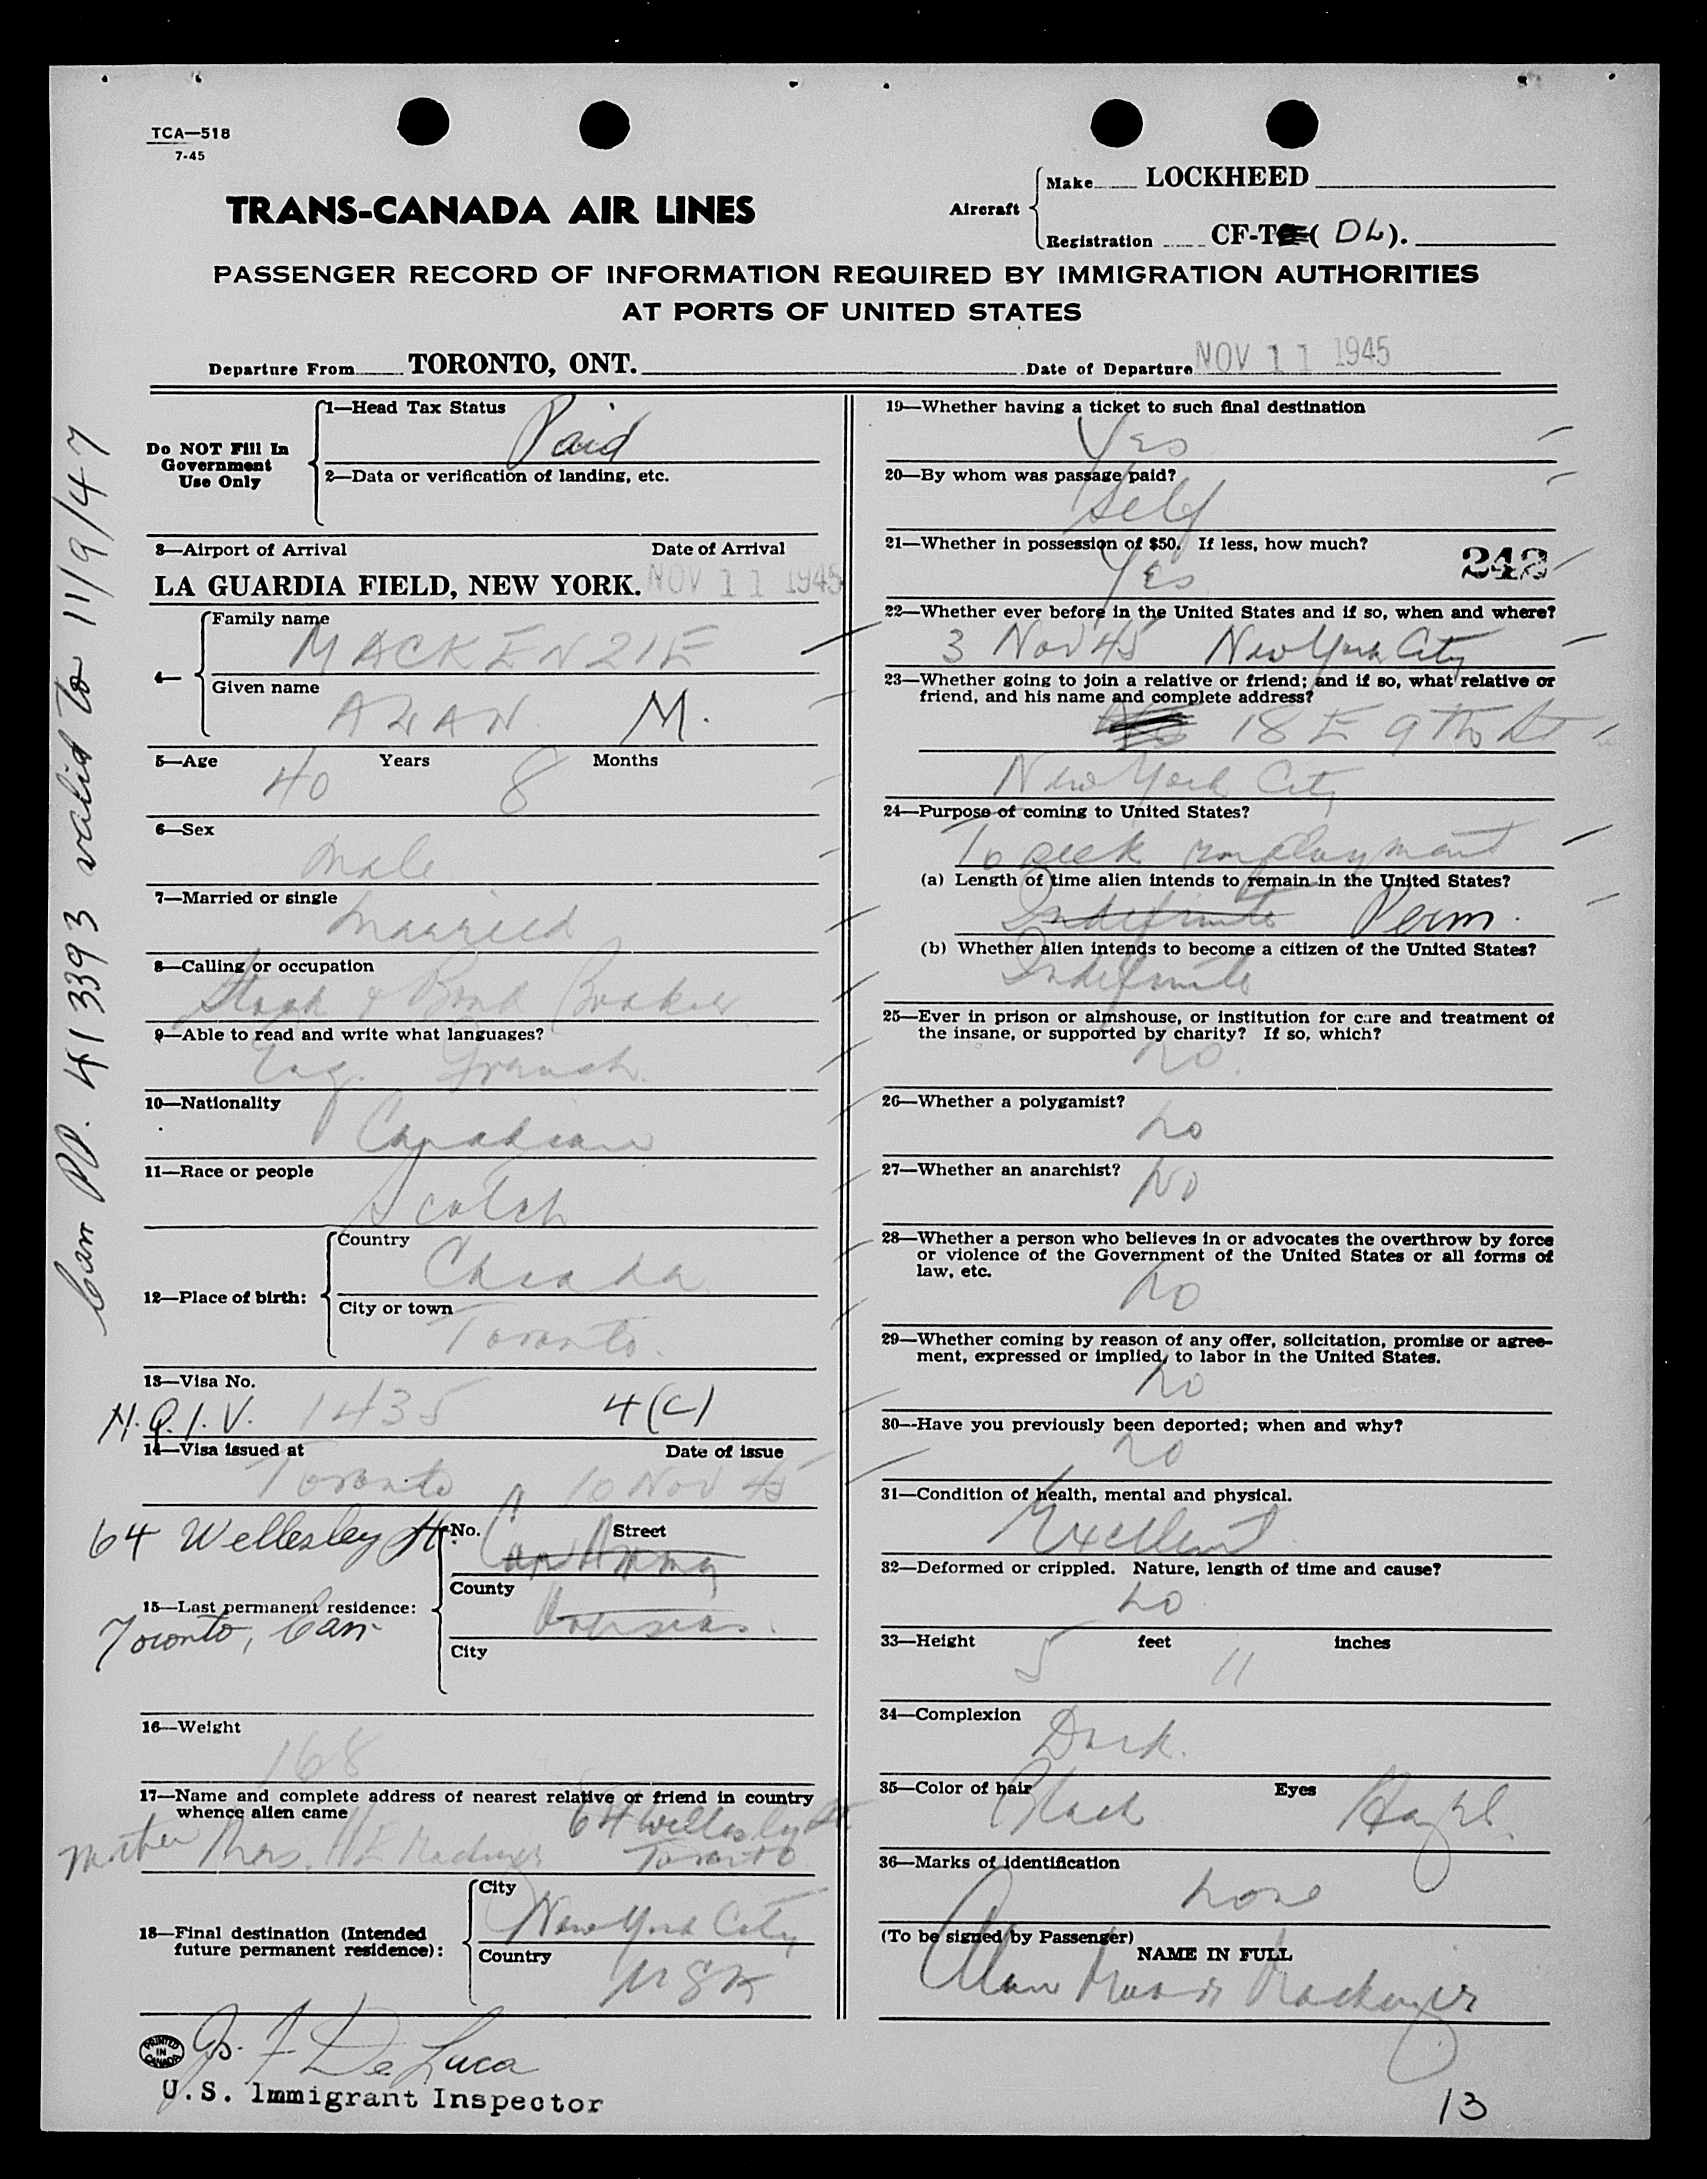 TCA—518
7-45
TRANS-CANADA AIR LINES
Aircraft
Make LOCKHEED
Registration CF-T ( DL ).
PASSENGER RECORD OF INFORMATION REQUIRED BY IMMIGRATION AUTHORITIES
AT PORTS OF UNITED STATES
Departure From TORONTO, ONT. Date of Departure NOV 11 1945
Can PP. 413393 valid to 11/9/47
Do NOT Fill In
Government
Use Only
1—Head Tax Status Paid
2—Data or verification of landing, etc.
3—Airport of Arrival Date of Arrival
LA GUARDIA FIELD, NEW YORK. NOV 11 1945
4—
Family name
MACKENZIE
Given name
ALAN M.
5—Age 40 Years 8 Months
6—Sex
Male
7—Married or single
Married
8—Calling or occupation
Stock & Bond Broker
9—Able to read and write what languages?
Eng. French.
10—Nationality
Canadian
11—Race or people
Scotch
12—Place of birth:
Country
Canada
City or town
Toronto.
13—Visa No.
N.Q.I.V. 1435 4(C)
14—Visa issued at Date of issue
Toronto 10 Nov 45
64 Wellesley St.
No. Street
Can Army
County
15—Last permanent residence:
Overseas.
Toronto, Can
City
16—Weight
168
17—Name and complete address of nearest relative or friend in country
whence alien came
64 Wellesley St
Mother Mrs. Toronto
18—Final destination (Intended
future permanent residence):
City
New York City
Country
USA
J. F De Luca
PRINTED IN CANADA
U.S. Immigrant Inspector
19—Whether having a ticket to such final destination
Yes
20—By whom was passage paid?
Self
21—Whether in possession of $50. If less, how much?
Yes
242
22—Whether ever before in the United States and if so, when and where?
3 Nov 45 New York City
23—Whether going to join a relative or friend; and if so, what relative or
friend, and his name and complete address?
18 E 9th St
New York City
24—Purpose of coming to United States?
To seek employment
(a) Length of time alien intends to remain in the United States?
Indefinite Perm.
(b) Whether alien intends to become a citizen of the United States?
Indefinite
25—Ever in prison or almshouse, or institution for care and treatment of
the insane, or supported by charity? If so, which?
No.
26—Whether a polygamist?
No
27—Whether an anarchist?
No
28—Whether a person who believes in or advocates the overthrow by force
or violence of the Government of the United States or all forms of
law, etc.
No
29—Whether coming by reason of any offer, solicitation, promise or agree-
ment, expressed or implied, to labor in the United States.
No
30—Have you previously been deported; when and why?
No
31—Condition of health, mental and physical.
Excellent
32—Deformed or crippled. Nature, length of time and cause?
No
33—Height feet inches
5 11
34—Complexion
Dark.
35—Color of hair Eyes
Black Hazel.
36—Marks of identification
None
(To be signed by Passenger)
NAME IN FULL
Alan Mackenzie
13